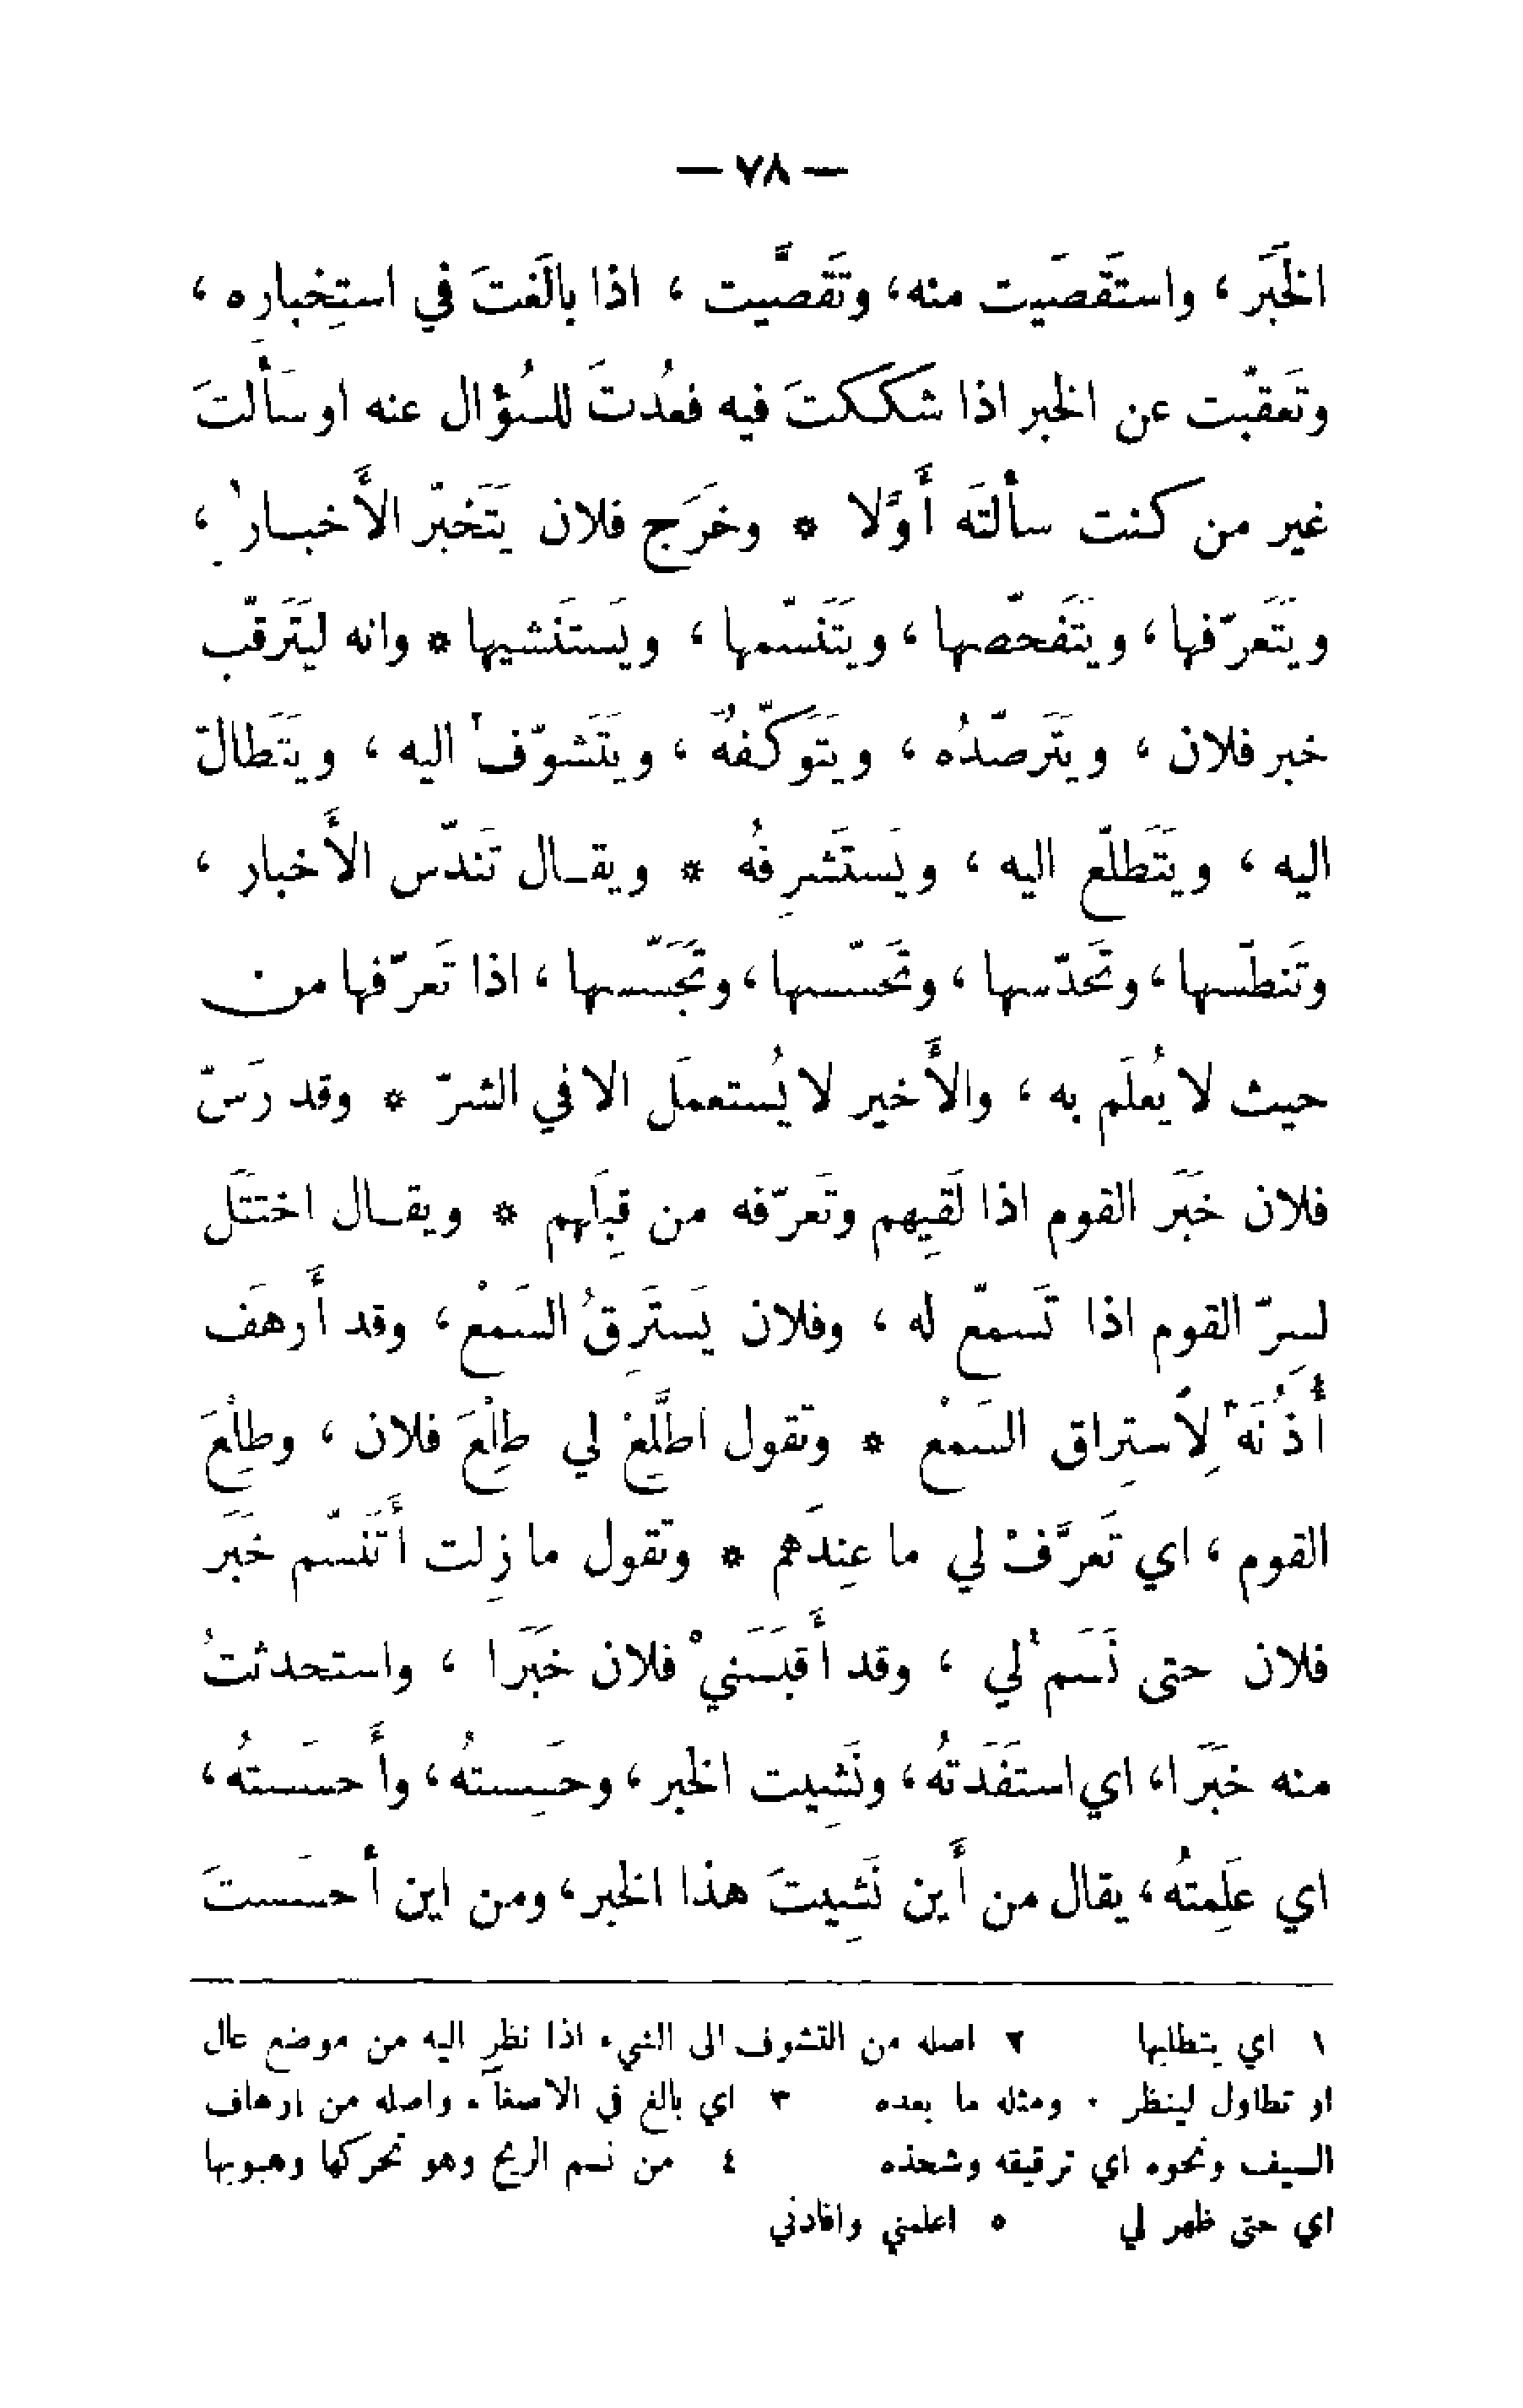 — ٧٨ —
الخَبَر ، واستَقصَيت منه، وتَقَصَّيت ، اذا بالَغتَ في استِخبارِه ،
وتَعقّبت عن الخبر اذا شككتَ فيه فعُدتَ للسُؤال عنه او سَألتَ
غير من كنت سألتَه أَوَّلا * وخرَج فلان يَتَخبّر الأَخبـار١ ،
ويَتَعرّفها ، ويَتَفحّصها ، ويَتَنسّمها ، ويَستَنشيها * وانه ليَتَرقّب
خبر فلان ، ويَتَرصّدُه ، ويَتَوكّفُه ، ويَتَشوّف٢ اليه ، ويَتَطالّ
اليه ، ويَتَطلّع اليه ، ويَستَشرِفُه * ويقـال تَندّس الأَخبار ،
وتَنطّسها ، وتَحدّسها ، وتَحسّسها ، وتَجَسّسها ، اذا تَعرّفها من
حيث لا يُعلَم به ، والأَخير لا يُستعمَل الا في الشرّ * وقد رَسّ
فلان خَبَر القوم اذا لَقِيهم وتَعرّفه من قِبَلهم * ويقـال اختَتَل
لسِرّ القوم اذا تَسمّع له ، وفلان يَستَرِقُ السَمْع ، وقد أَرهَف
أُذُنَه٣ لِاَستِراق السَمْع * وتقول اطَّلِعْ لي طِلْعَ فلان ، وطِلْعَ
القوم ، اي تَعرَّفْ لي ما عِندَهم * وتقول ما زِلت أَتَنسّم خَبَر
فلان حتى نَسَم٤ لي ، وقد أَقبَسَني٥ فلان خَبَرا ، واستحدثتُ
منه خَبَرا، اي استَفَدَتُه ، ونَشِيت الخبر ، وحَسِستُه ، وأَحسَستُه ،
اي عَلِمتُه ، يقال من أَين نَشِيتَ هذا الخبر ، ومن اين أحسَستَ
١ اي يتطلبها ٢ اصله من التشوف الى الشيء اذا نظر اليه من موضع عال
او تطاول لينظر . ومثله ما بعده ٣ اي بالغ في الاصغآء واصله من ارهاف
السيف ونحوه اي ترقيقه وشحذه ٤ من نسم الريح وهو تحركها وهبوبها
اي حتى ظهر لي ٥ اعلمني وافادني